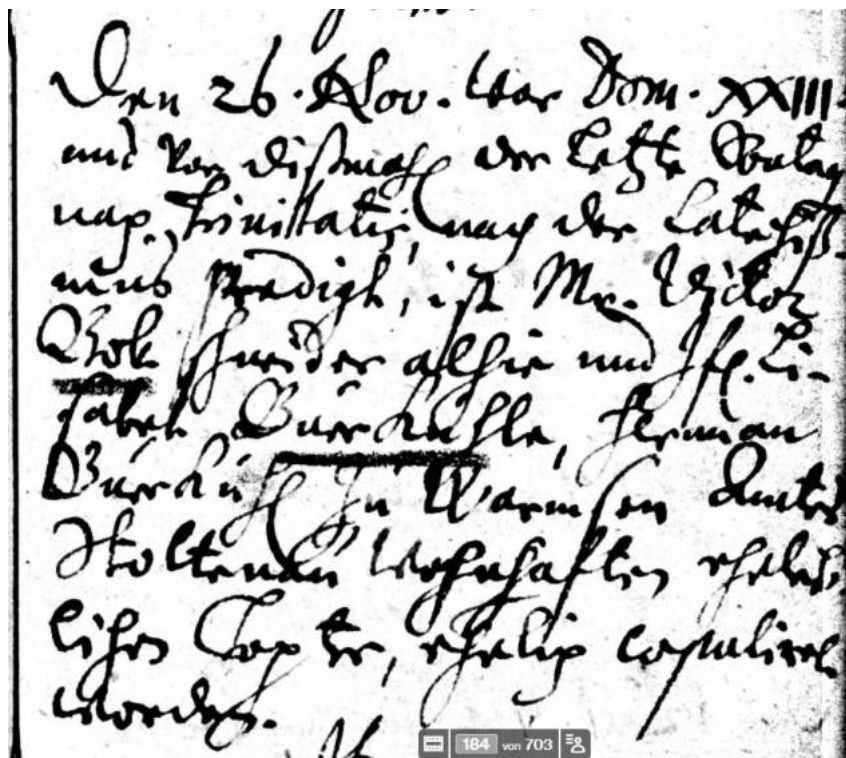 Den 26. Nov. war Dom. XXIII.
und vor dißmahl der letzte Sontag
nach Trinitatis, nach der Catechiß-
mus Predigt, ist Mr. Victor
Bok schneider alhie und Jfr. Li-
sabet Buerkuhle, Herman
Buerkuhl zu Warmsen Amtes
Stoltenau wohnhaften ehelei-
lichen Tochter, ehelich copuliret
worden.
184 von 703